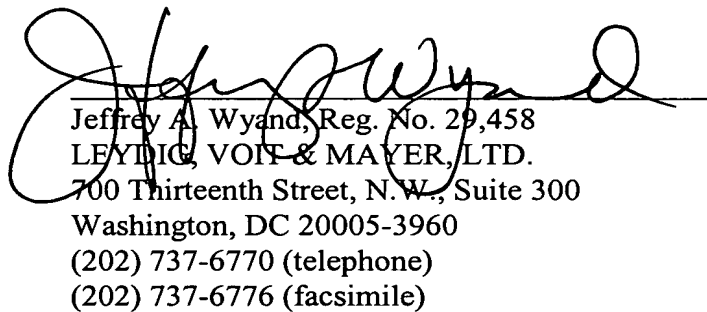 Jeffrey A. Wyand
Jeffrey A. Wyand, Reg. No. 29,458
LEYDIG, VOIT & MAYER, LTD.
700 Thirteenth Street, N.W., Suite 300
Washington, DC 20005-3960
(202) 737-6770 (telephone)
(202) 737-6776 (facsimile)